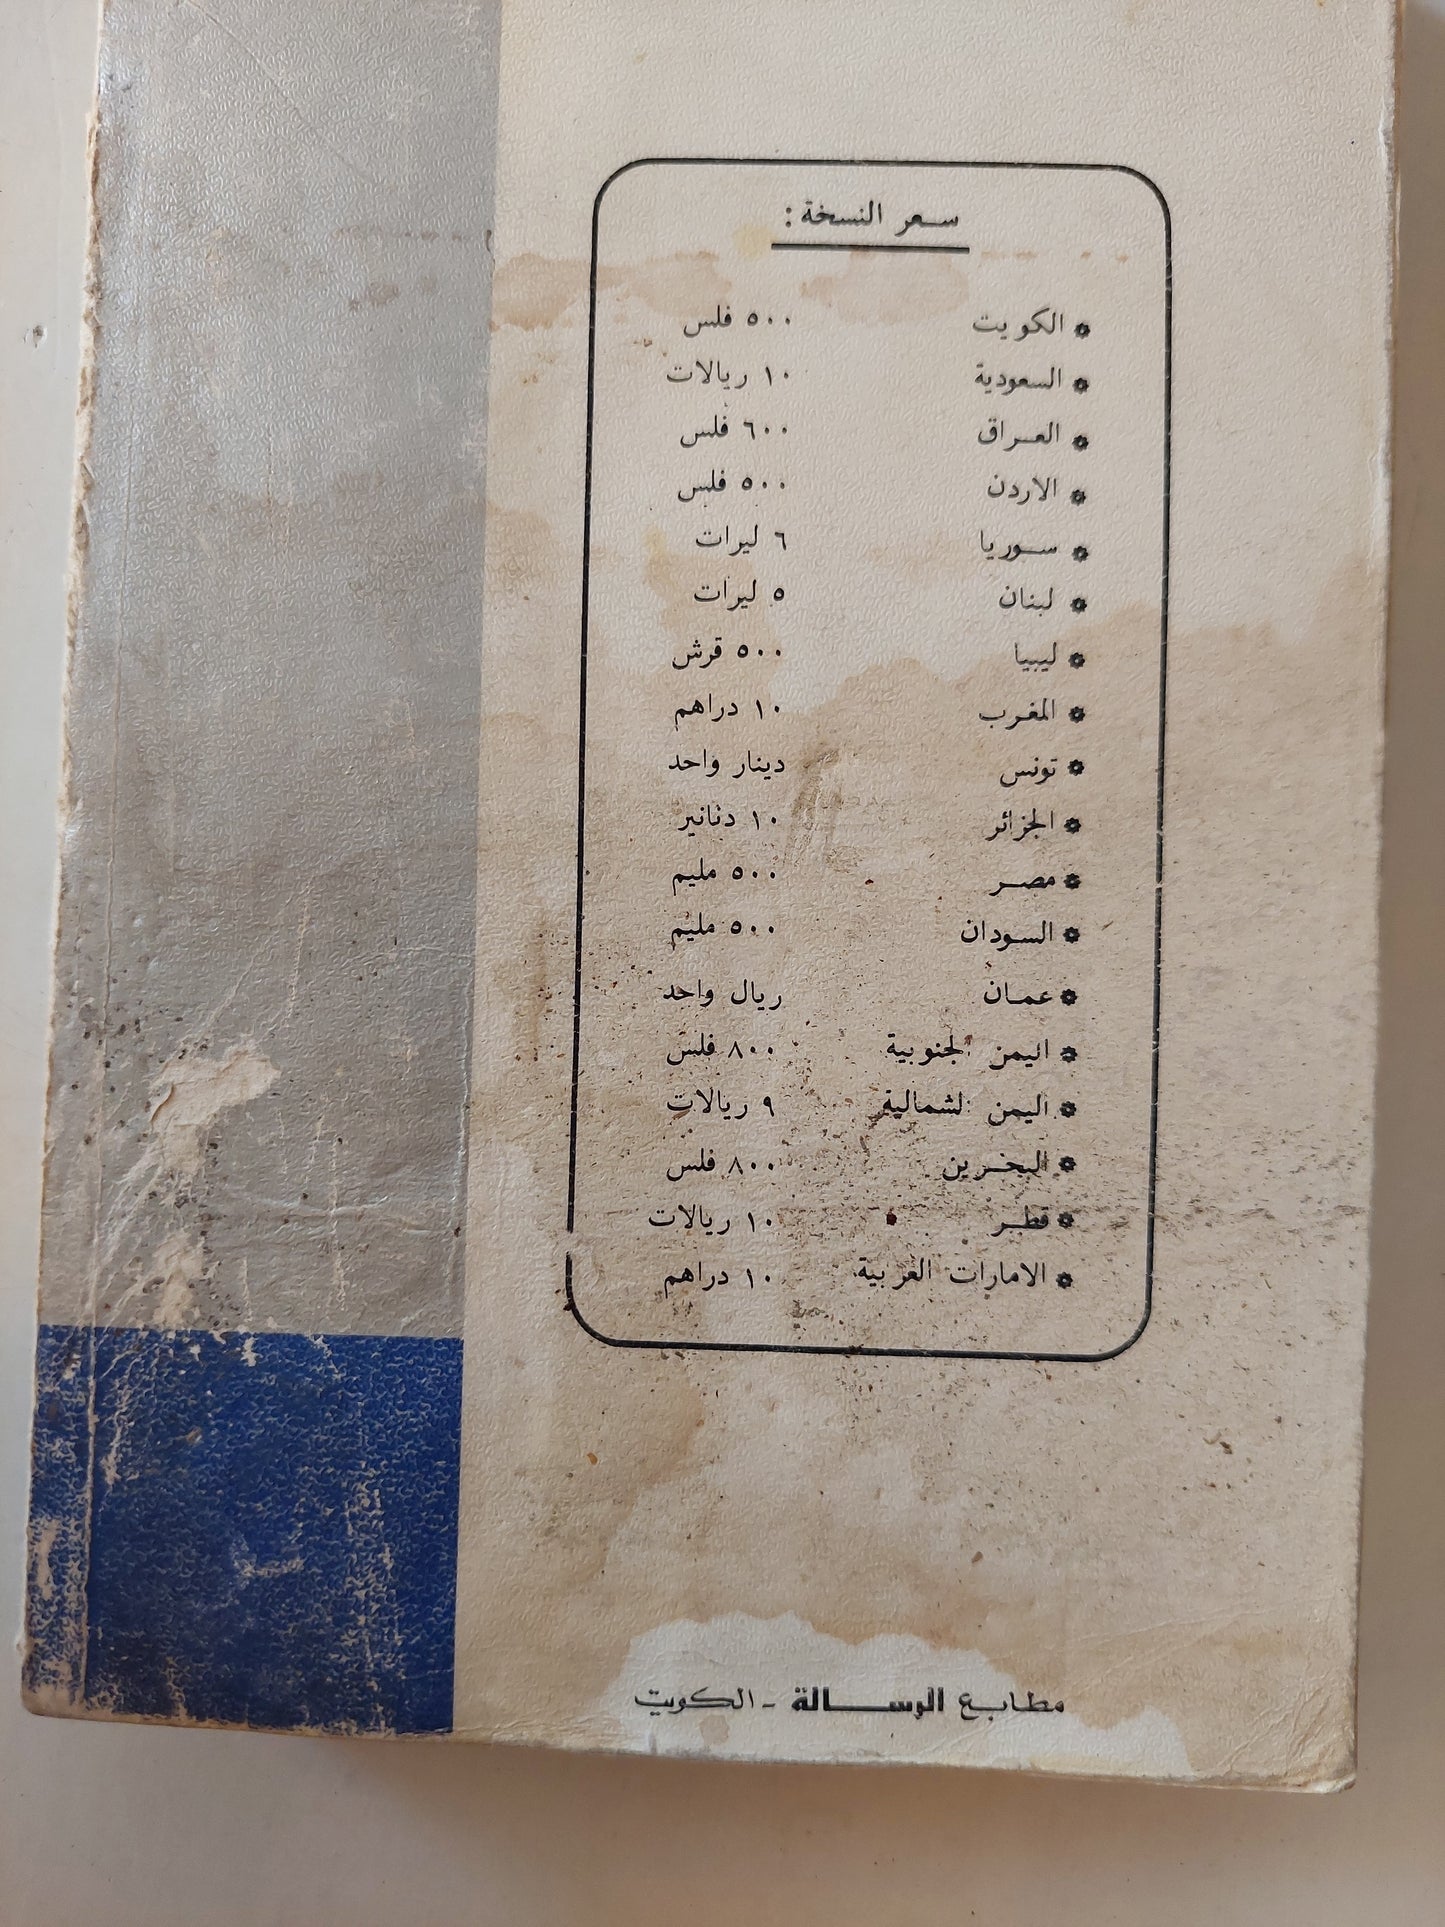 سعر النسخة :
الكويت ٥٠٠ فلس
السعودية ١٠ ريالات
العراق ٦٠٠ فلس
الاردن ٥٠٠ فلس
سوريا ٦ ليرات
لبنان ٥ ليرات
ليبيا ٥٠٠ قرش
المغرب ١٠ دراهم
تونس دينار واحد
الجزائر ١٠ دنانير
مصر ٥٠٠ مليم
السودان ٥٠٠ مليم
عمان ريال واحد
اليمن الجنوبية ٨٠٠ فلس
اليمن الشمالية ٩ ريالات
البحرين ٨٠٠ فلس
قطر ١٠ ريالات
الامارات العربية ١٠ دراهم
مطابع الرسالة - الكويت